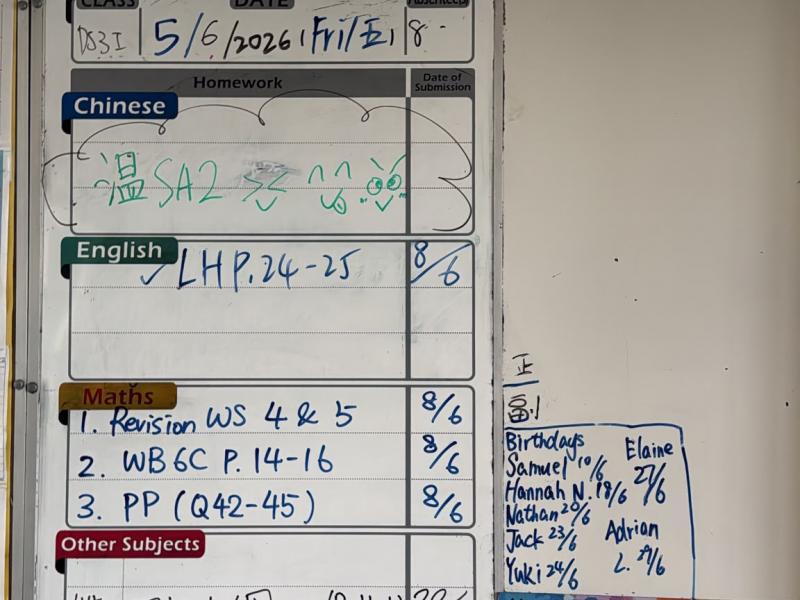 CLASS DATE Absentees
DS3I 5/6/2026 (Fri/五) 8
Homework Date of Submission
Chinese
温 SA2
English
✓ LH P.24-25 8/6
Maths
1. Revision WS 4 & 5 8/6
2. WB 6C P. 14-16 8/6
3. PP (Q42-45) 8/6
Other Subjects
正
副
Birthdays
Samuel 10/6
Hannah N. 18/6
Nathan 20/6
Jack 23/6
Yuki 24/6
Elaine 27/6
Adrian L. 29/6